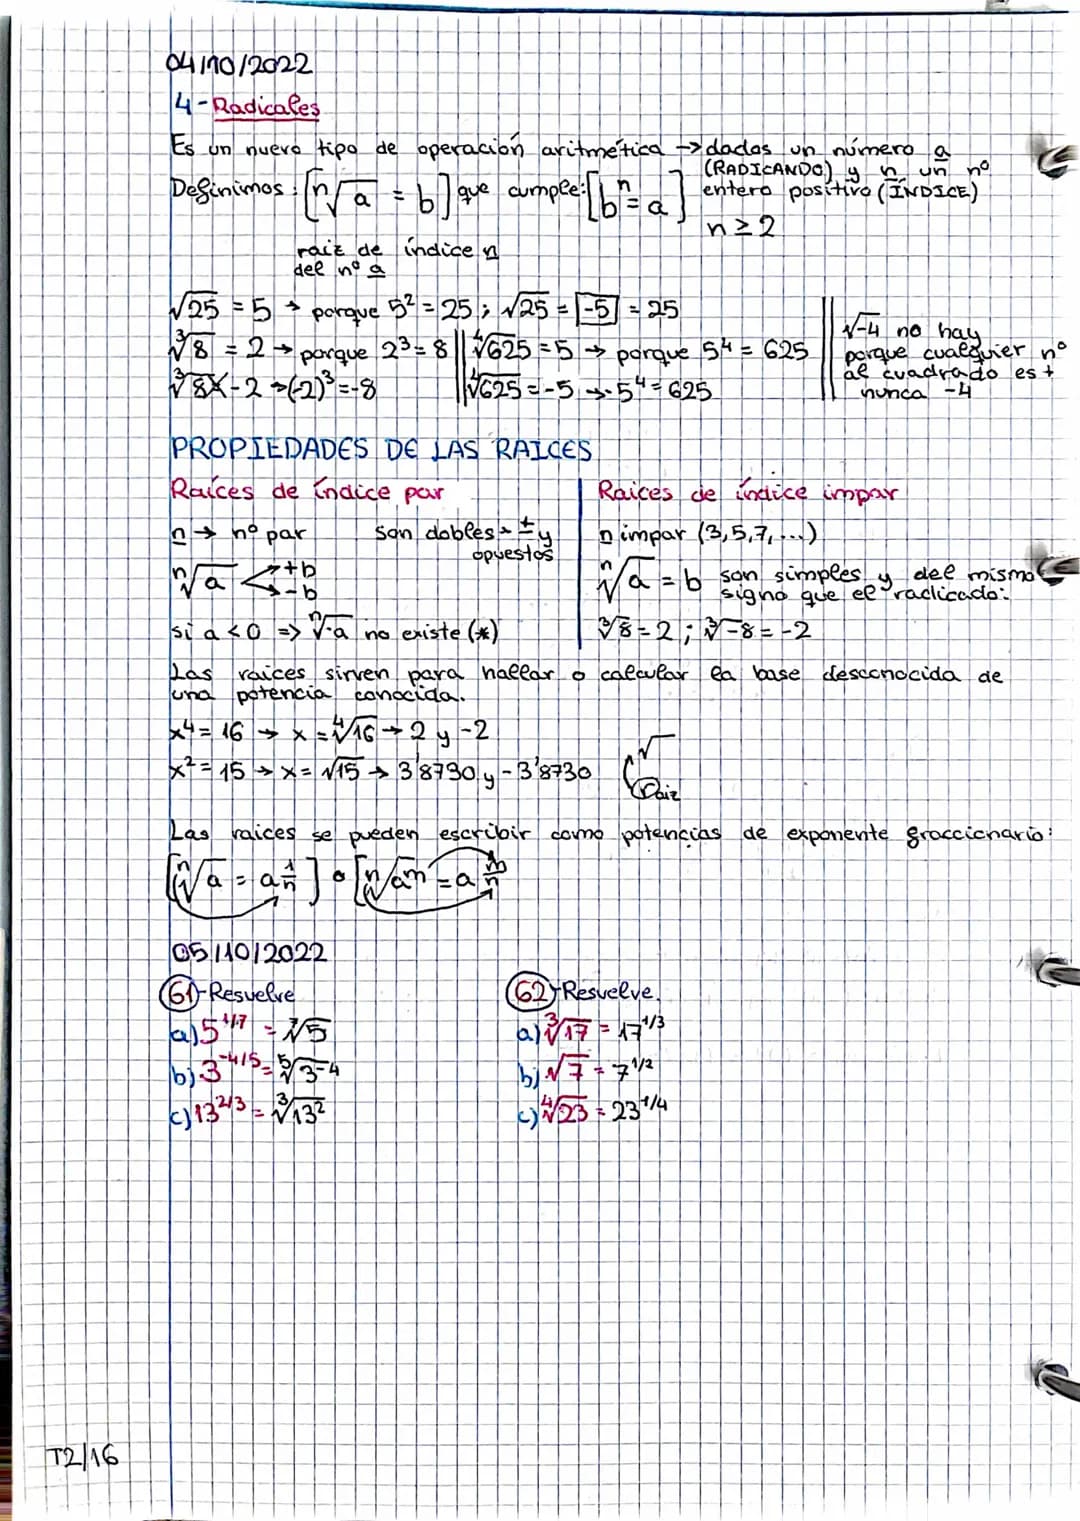 04/10/2022
4-Radicales
Es un nuevo tipo de operación aritmética → dados un número a
(RADICANDO) y n un nº
entero positivo (ÍNDICE)
n ≥ 2
Definimos: [ⁿ√a = b] que cumple: [bⁿ = a]
raiz de índice n
del nº a
√25 = 5 → porque 5² = 25 ; √25 = -5 = 25
³√8 = 2 → porque 2³ = 8 || ⁴√625 = 5 → porque 5⁴ = 625
³√8 ≠ -2 → (-2)³ = -8 || ⁴√625 = -5 → -5⁴ = 625
√-4 no hay
porque cualquier nº
al cuadrado es +
nunca -4
PROPIEDADES DE LAS RAICES
Raíces de índice par
n → nº par son dobles → ± y
opuestos
ⁿ√a < +b
-b
si a < 0 => ⁿ√-a no existe (*)
Raices de índice impar
n impar (3,5,7,...)
ⁿ√a = b son simples y del mismo
signo que el radicado:
³√8 = 2 ; ³√-8 = -2
Las raices sirven para hallar o calcular la base desconocida de
una potencia conocida.
x⁴ = 16 → x = ⁴√16 → 2 y -2
x² = 15 → x = √15 → 3'8730 y -3'8730
√
Raiz
Las raices se pueden escribir como potencias de exponente fraccionario:
[ⁿ√a = a^1/n] o [ⁿ√a^m = a^m/n]
05/10/2022
61-Resuelve
a) 5^1/7 = ⁷√5
b) 3^-4/5 = ⁵√3⁻⁴
c) 13^2/3 = ³√13²
62-Resuelve.
a) ³√17 = 17^1/3
b) √7 = 7^1/2
c) ⁴√23 = 23^1/4
T2/16